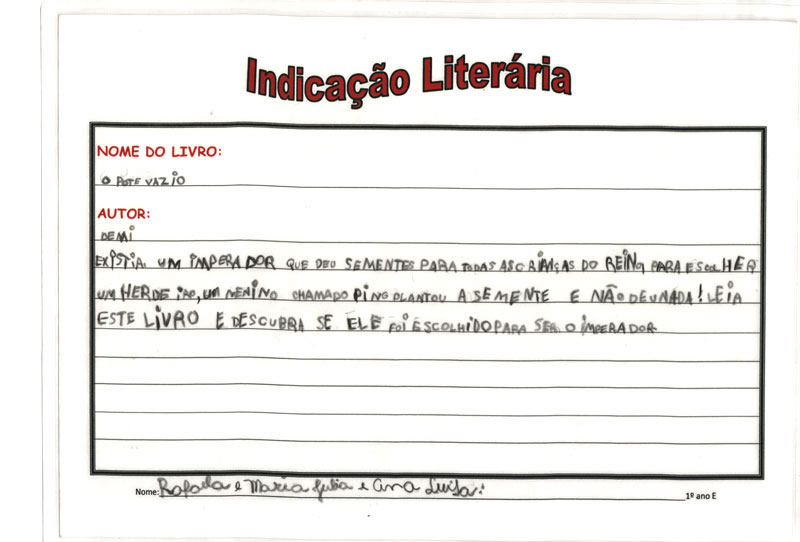 Indicação Literária
NOME DO LIVRO:
O POTE VAZIO
AUTOR:
DEMI
EXISTIA UM IMPERADOR QUE DEU SEMENTES PARA TODAS AS CRIANÇAS DO REINO, PARA ESCOLHER
UM HERDEIRO, UM MENINO CHAMADO PING PLANTOU A SEMENTE E NÃO DEU NADA! LEIA
ESTE LIVRO E DESCUBRA SE ELE FOI ESCOLHIDO PARA SER O IMPERADOR.
Nome: Rafaela e Maria Julia e Ana Luisa. 1º ano E